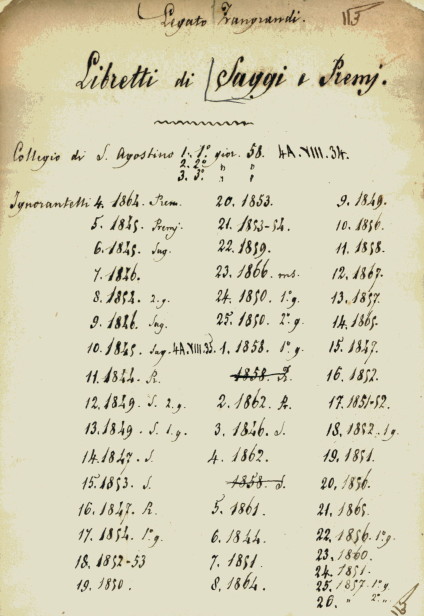 Legato Zangrandi. 113
Libretti di Saggi e Premj.
Collegio di S. Agostino 1. 1º gior. 58. 4A.VIII.34.
2. 2º " "
3. 3º " "
Ignorantelli 4. 1864. Prem. 20. 1853. 9. 1849.
5. 1845. Premj. 21. 1853-54. 10. 1856.
6. 1845. Sag. 22. 1859. 11. 1858.
7. 1846. 23. 1866. ms. 12. 1867.
8. 1852. 2.g. 24. 1850. 1ºg. 13. 1857.
9. 1846. Sag. 25. 1850. 2ºg. 14. 1865.
10. 1845. Sag. 4A.VIII.33. 1. 1858. 1º g. 15. 1847.
11. 1844. R. 1858. 16. 1852.
12. 1849. S. 2.g. 2. 1862. 17. 1851-52.
13. 1849. S. 1.g. 3. 1846. S. 18. 1852. 1g.
14. 1847. S. 4. 1862. 19. 1851.
15. 1853. S. 1858. S. 20. 1856.
16. 1847. R. 5. 1861. 21. 1865.
17. 1854. 1ºg. 6. 1844. 22. 1856. 1ºg.
18. 1852-53 7. 1851. 23. 1860.
24. 1851.
19. 1850. 8. 1864. 25. 1857. 1ºg.
26. " 2º "
113